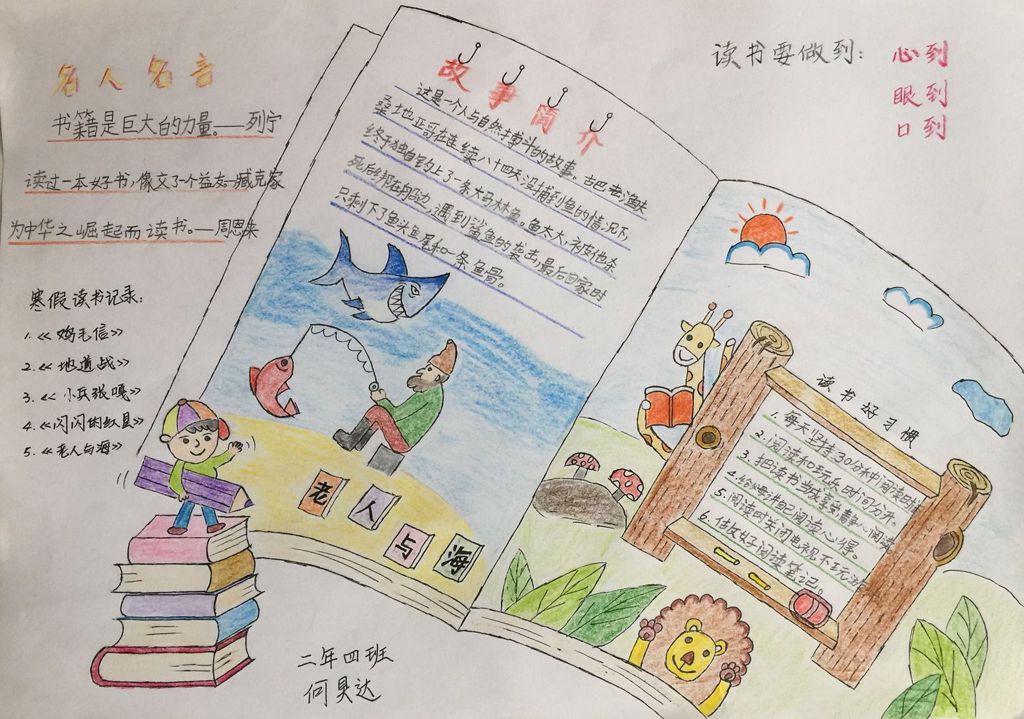 名人名言
书籍是巨大的力量。——列宁
读过一本好书,像交了一个益友—臧克家
为中华之崛起而读书。—周恩来
寒假读书记录:
1.《鸡毛信》
2.《地道战》
3.《小兵张嘎》
4.《闪闪的红星》
5.《老人与海》
故事简介
这是一个人与自然搏斗的故事。古巴老渔夫
桑地亚哥在连续八十四天没捕到鱼的情况下,
终于独自钓上了一条大马林鱼。鱼太大,被他杀
死后绑在船边,遇到鲨鱼的袭击,最后回家时
只剩下了鱼头鱼尾和一条鱼骨。
老人与海
读书要做到:
心到
眼到
口到
读书好习惯
1.每天坚持30分钟阅读时间
2.阅读和玩乐时间分开。
3.把读书当成享受静心阅读
4.给妈妈讲自己阅读心得。
5.阅读时关闭电视不玩
6.做好阅读笔记。
二年四班
何昊达